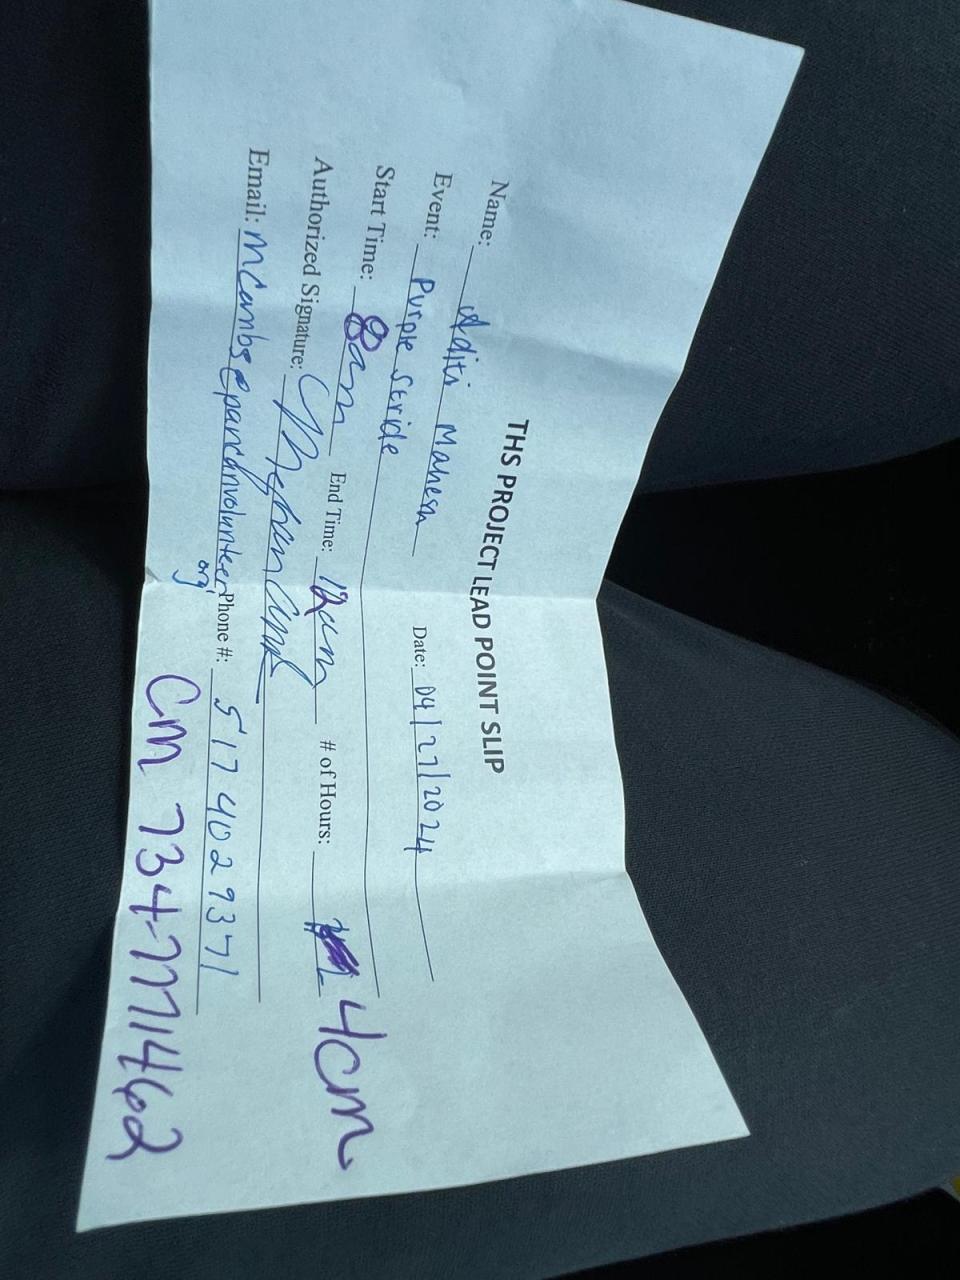 THS PROJECT LEAD POINT SLIP
Name: Aditi Mahesh Date: 04/27/2024
Event: Purple Stride
Start Time: 8am End Time: 12am # of Hours: 4 CM
Authorized Signature: Meghan
Email: mcambs@pancanvolunteer.org Phone #: 517 402 9371
CM 734-7771462